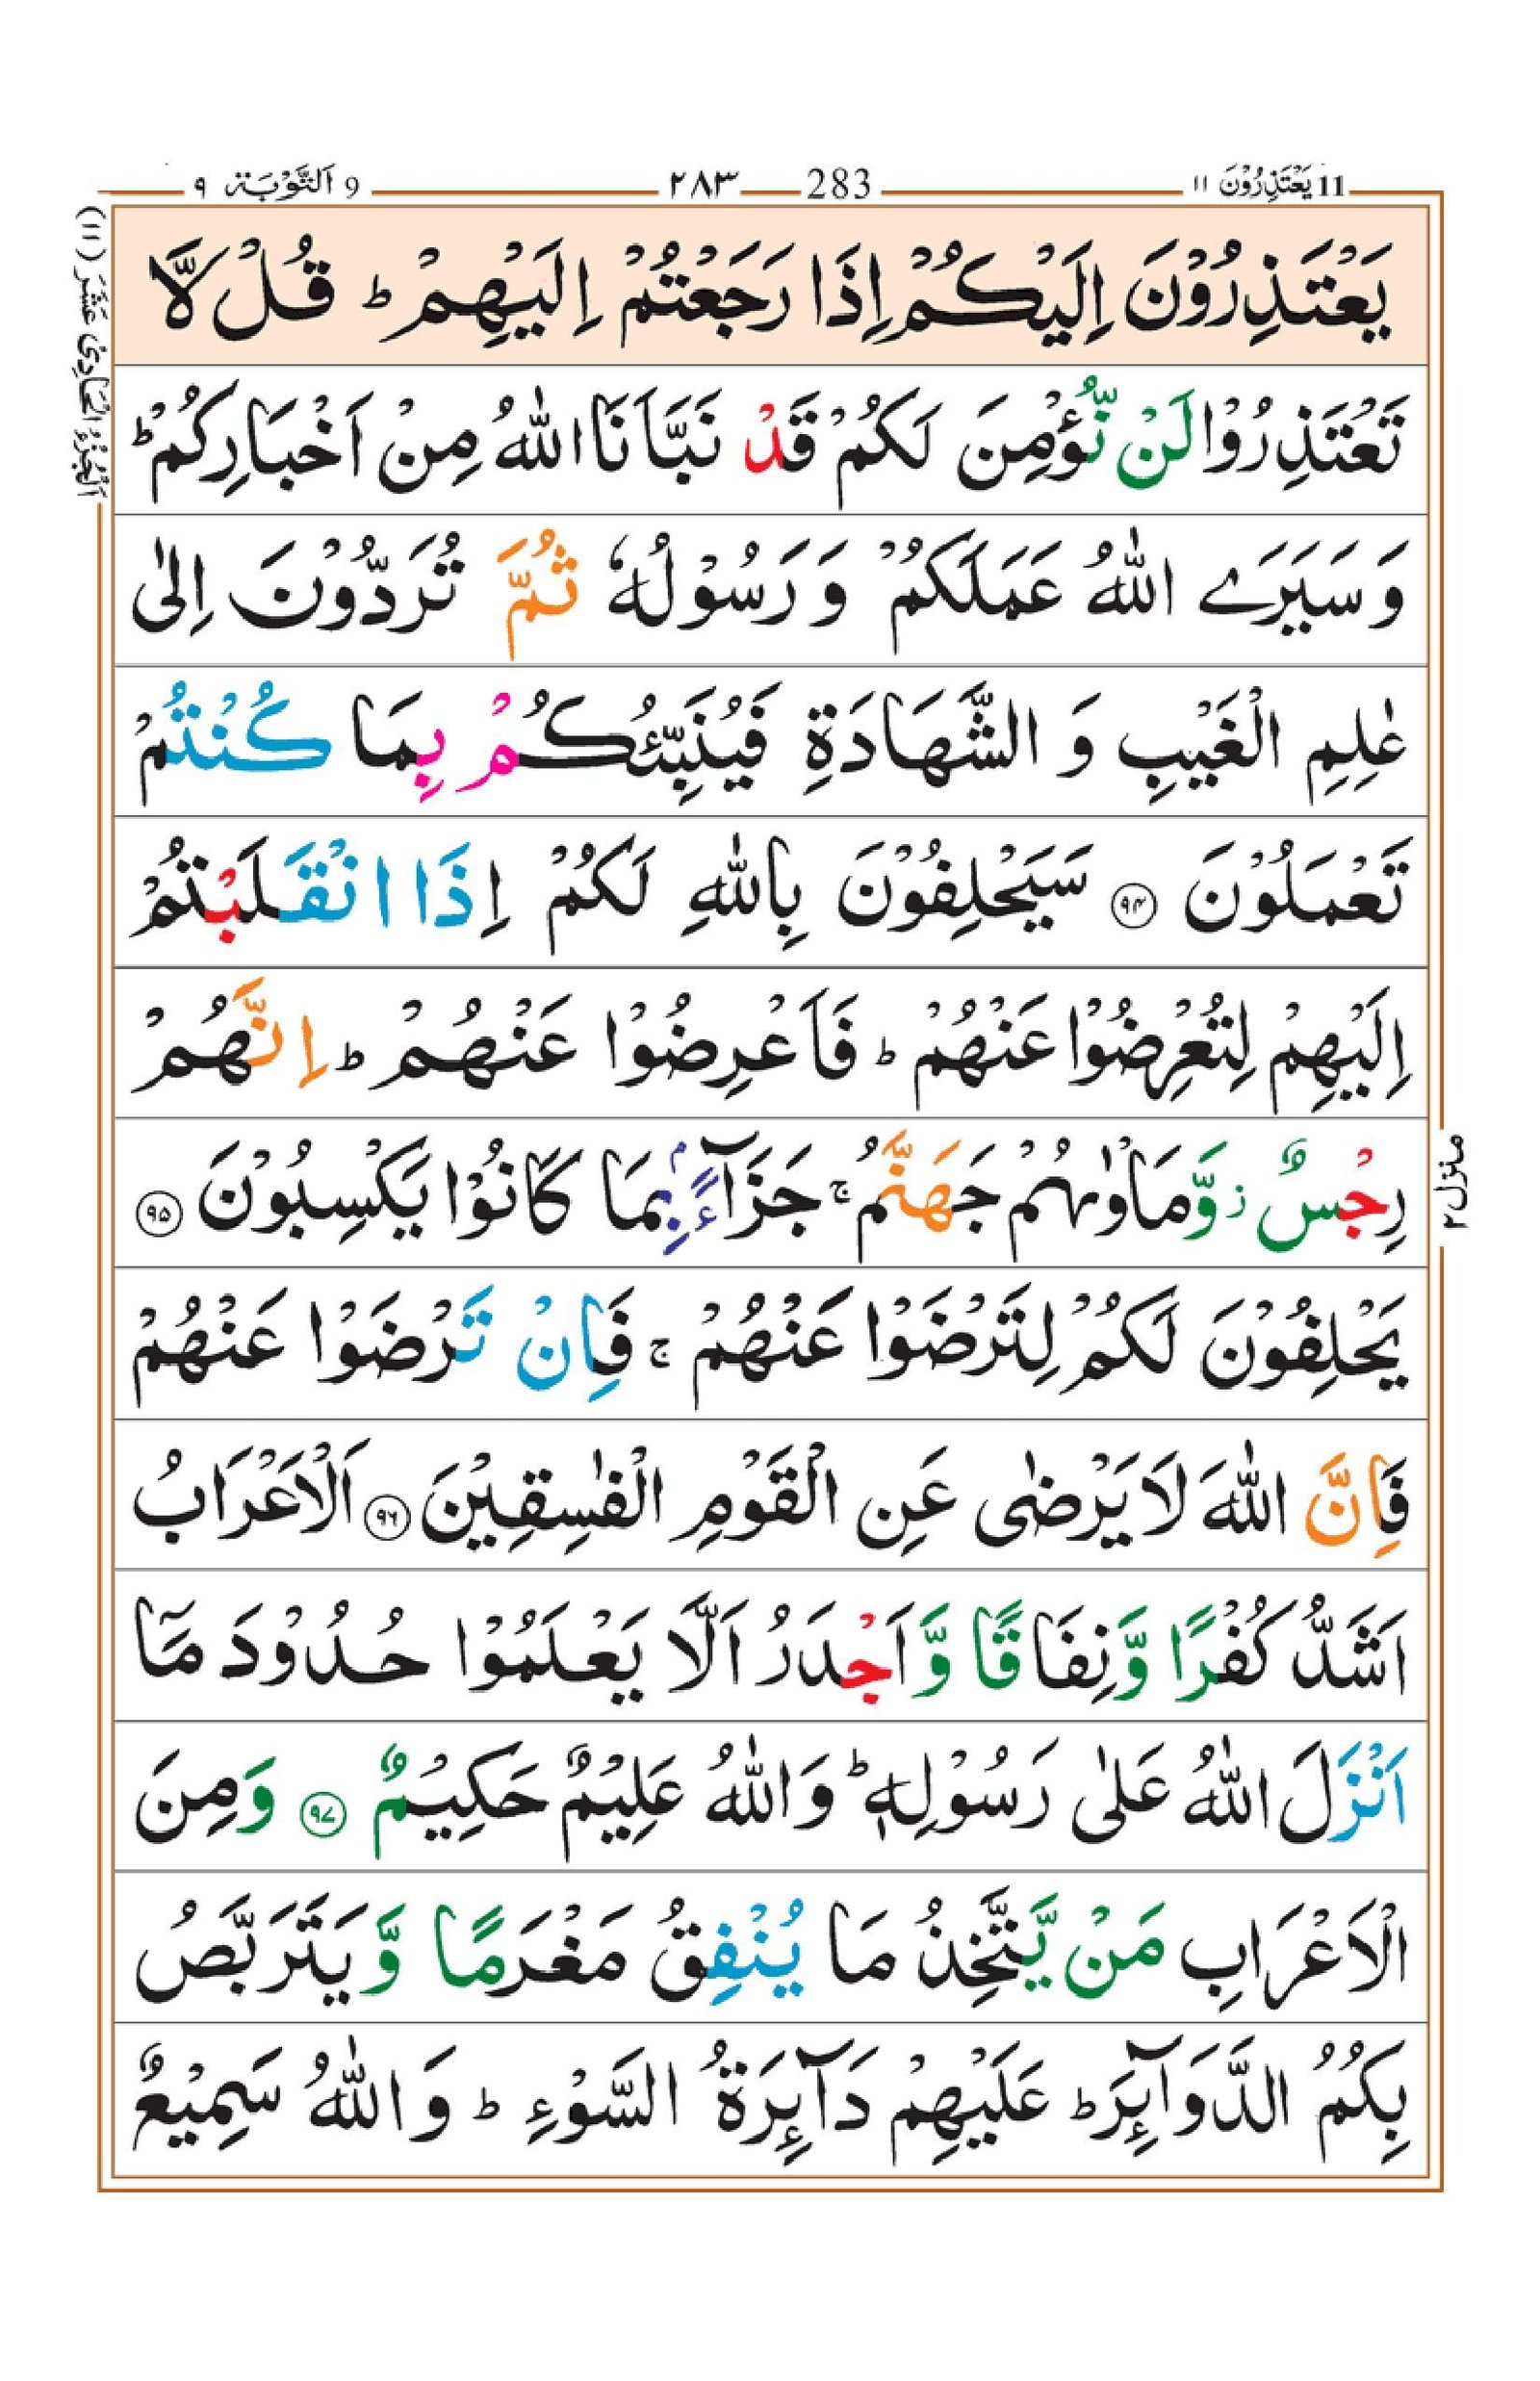 11 يَعْتَذِرُوْنَ ١١ 283 ٢٨٣ 9 اَلتَّوْبَة ٩
اَلْجُزْءُ الْحَادِىْ عَشَرَ (١١)
يَعْتَذِرُوْنَ اِلَيْكُمْ اِذَا رَجَعْتُمْ اِلَيْهِمْ ؕ قُلْ لَّا
تَعْتَذِرُوْا لَنْ نُّؤْمِنَ لَكُمْ قَدْ نَبَّاَنَا اللّٰهُ مِنْ اَخْبَارِكُمْ ؕ
وَ سَيَرَى اللّٰهُ عَمَلَكُمْ وَ رَسُوْلُهٗ ثُمَّ تُرَدُّوْنَ اِلٰى
عٰلِمِ الْغَيْبِ وَ الشَّهَادَةِ فَيُنَبِّئُكُمْ بِمَا كُنْتُمْ
تَعْمَلُوْنَ ۝٩٤ سَيَحْلِفُوْنَ بِاللّٰهِ لَكُمْ اِذَا انْقَلَبْتُمْ
اِلَيْهِمْ لِتُعْرِضُوْا عَنْهُمْ ؕ فَاَعْرِضُوْا عَنْهُمْ ؕ اِنَّهُمْ
رِجْسٌ ؗ وَّمَاْوٰىهُمْ جَهَنَّمُ ۚ جَزَآءًۢ بِمَا كَانُوْا يَكْسِبُوْنَ ۝٩٥
يَحْلِفُوْنَ لَكُمْ لِتَرْضَوْا عَنْهُمْ ۚ فَاِنْ تَرْضَوْا عَنْهُمْ
فَاِنَّ اللّٰهَ لَا يَرْضٰى عَنِ الْقَوْمِ الْفٰسِقِيْنَ ۝٩٦ اَلْاَعْرَابُ
اَشَدُّ كُفْرًا وَّنِفَاقًا وَّاَجْدَرُ اَلَّا يَعْلَمُوْا حُدُوْدَ مَاۤ
اَنْزَلَ اللّٰهُ عَلٰى رَسُوْلِهٖ ؕ وَاللّٰهُ عَلِيْمٌ حَكِيْمٌ ۝٩٧ وَمِنَ
الْاَعْرَابِ مَنْ يَّتَّخِذُ مَا يُنْفِقُ مَغْرَمًا وَّيَتَرَبَّصُ
بِكُمُ الدَّوَآئِرَ ؕ عَلَيْهِمْ دَآئِرَةُ السَّوْءِ ؕ وَاللّٰهُ سَمِيْعٌ
منزل ٢